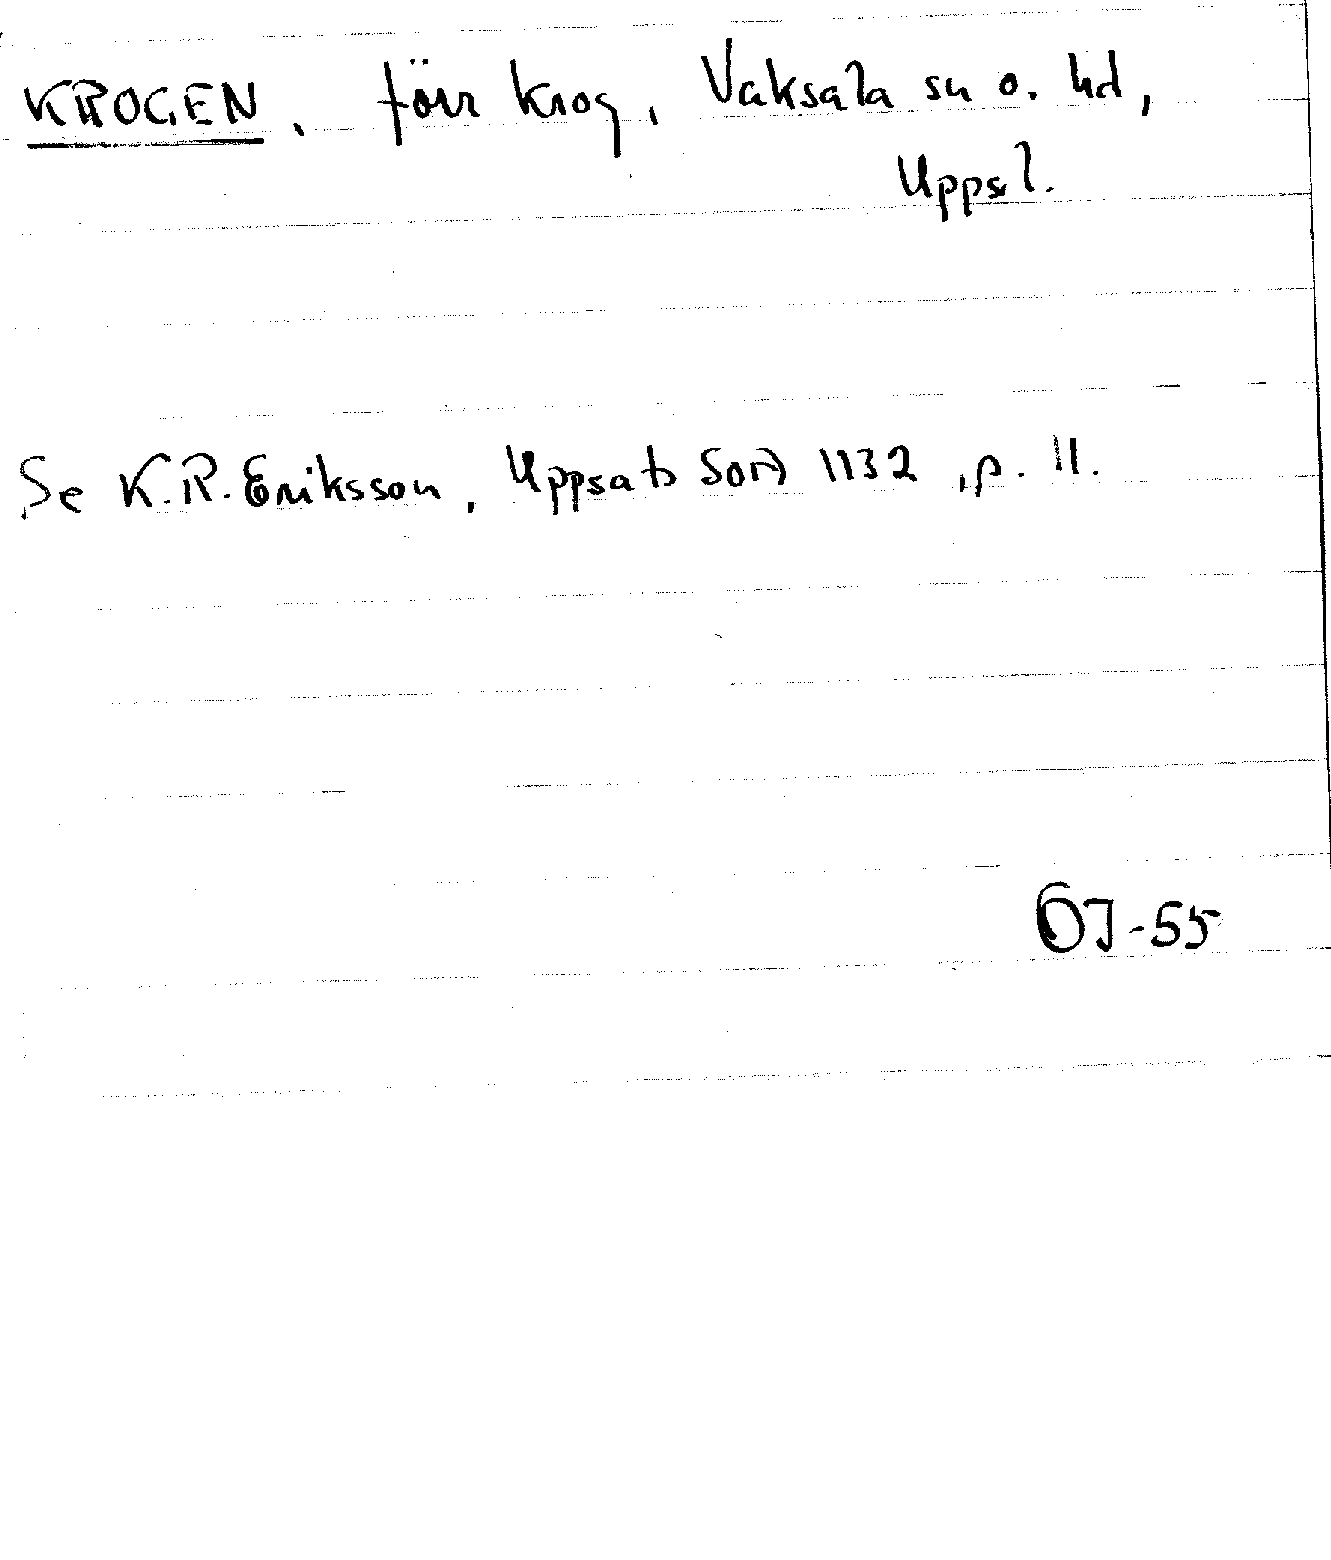 KROGEN, förr krog, Vaksala sn o. hd,
Uppsl.
Se K.R. Eriksson, Uppsats SOA 1132, p. 11.
ÖJ-55